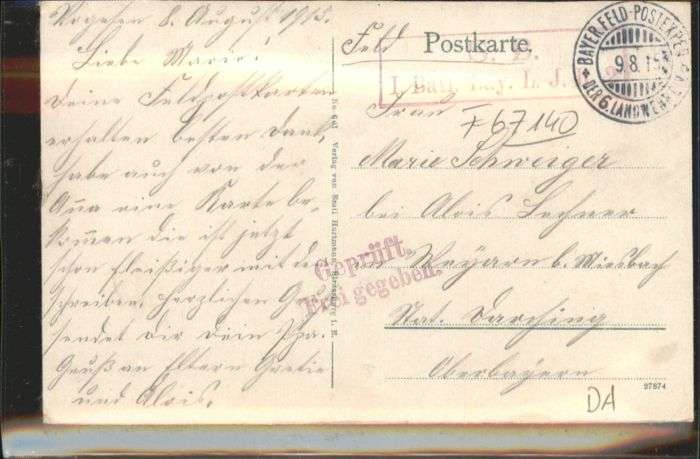 Vogesen 8. August 1915.
Liebe Marie!
Deine Feldpostkarten
erhalten besten Dank,
habe auch von der
Anna eine Karte be-
kommen die ist jetzt
schon fleißiger mit dem
schreiben. herzlichen Gruß
sendet Dir Dein
Gruß an Eltern
und Alois.
No 641 Verlag von Emil Hartmann, i. E.
Feld
Postkarte.
S. B.
I. Batl. Bay. L. J.
BAYER. FELD-POSTEXPED.
9.8.15
DER 6. LANDWEHR
Frau
F67140
Marie Schweiger
bei Alois Lechner
in Weyarn b. Miesbach
Stat. Darching
Oberbayern
Geprüft.
Frei gegeben.
27874
DA